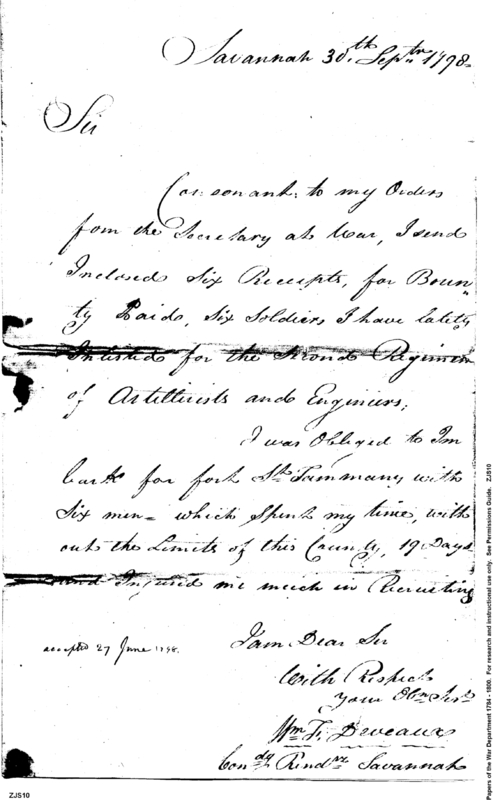 Savannah 30th. Septr. 1798.
Sir
Consonant, to my Orders
from the Secretary at War, I send
Inclosed Six Receipts, for Boun=
ty Paid, Six Soldiers I have lately
Inlisted for the Second Regiment
of Artillerists and Engineers;
I was Obliged to Im
bark for fort St. Tammany with
Six men = which Spent my time, with
out the Limits of this County, 19 Days
and Injured me much in Recruiting
accepted 27 June 1798.
I am Dear Sir
With Respect
your Obn. Sert.
Wm F. Deveaux
Comdg Rendzs Savannah
ZJS10
Papers of the War Department 1784 - 1800. For research and instructional use only. See Permissions Guide. ZJS10